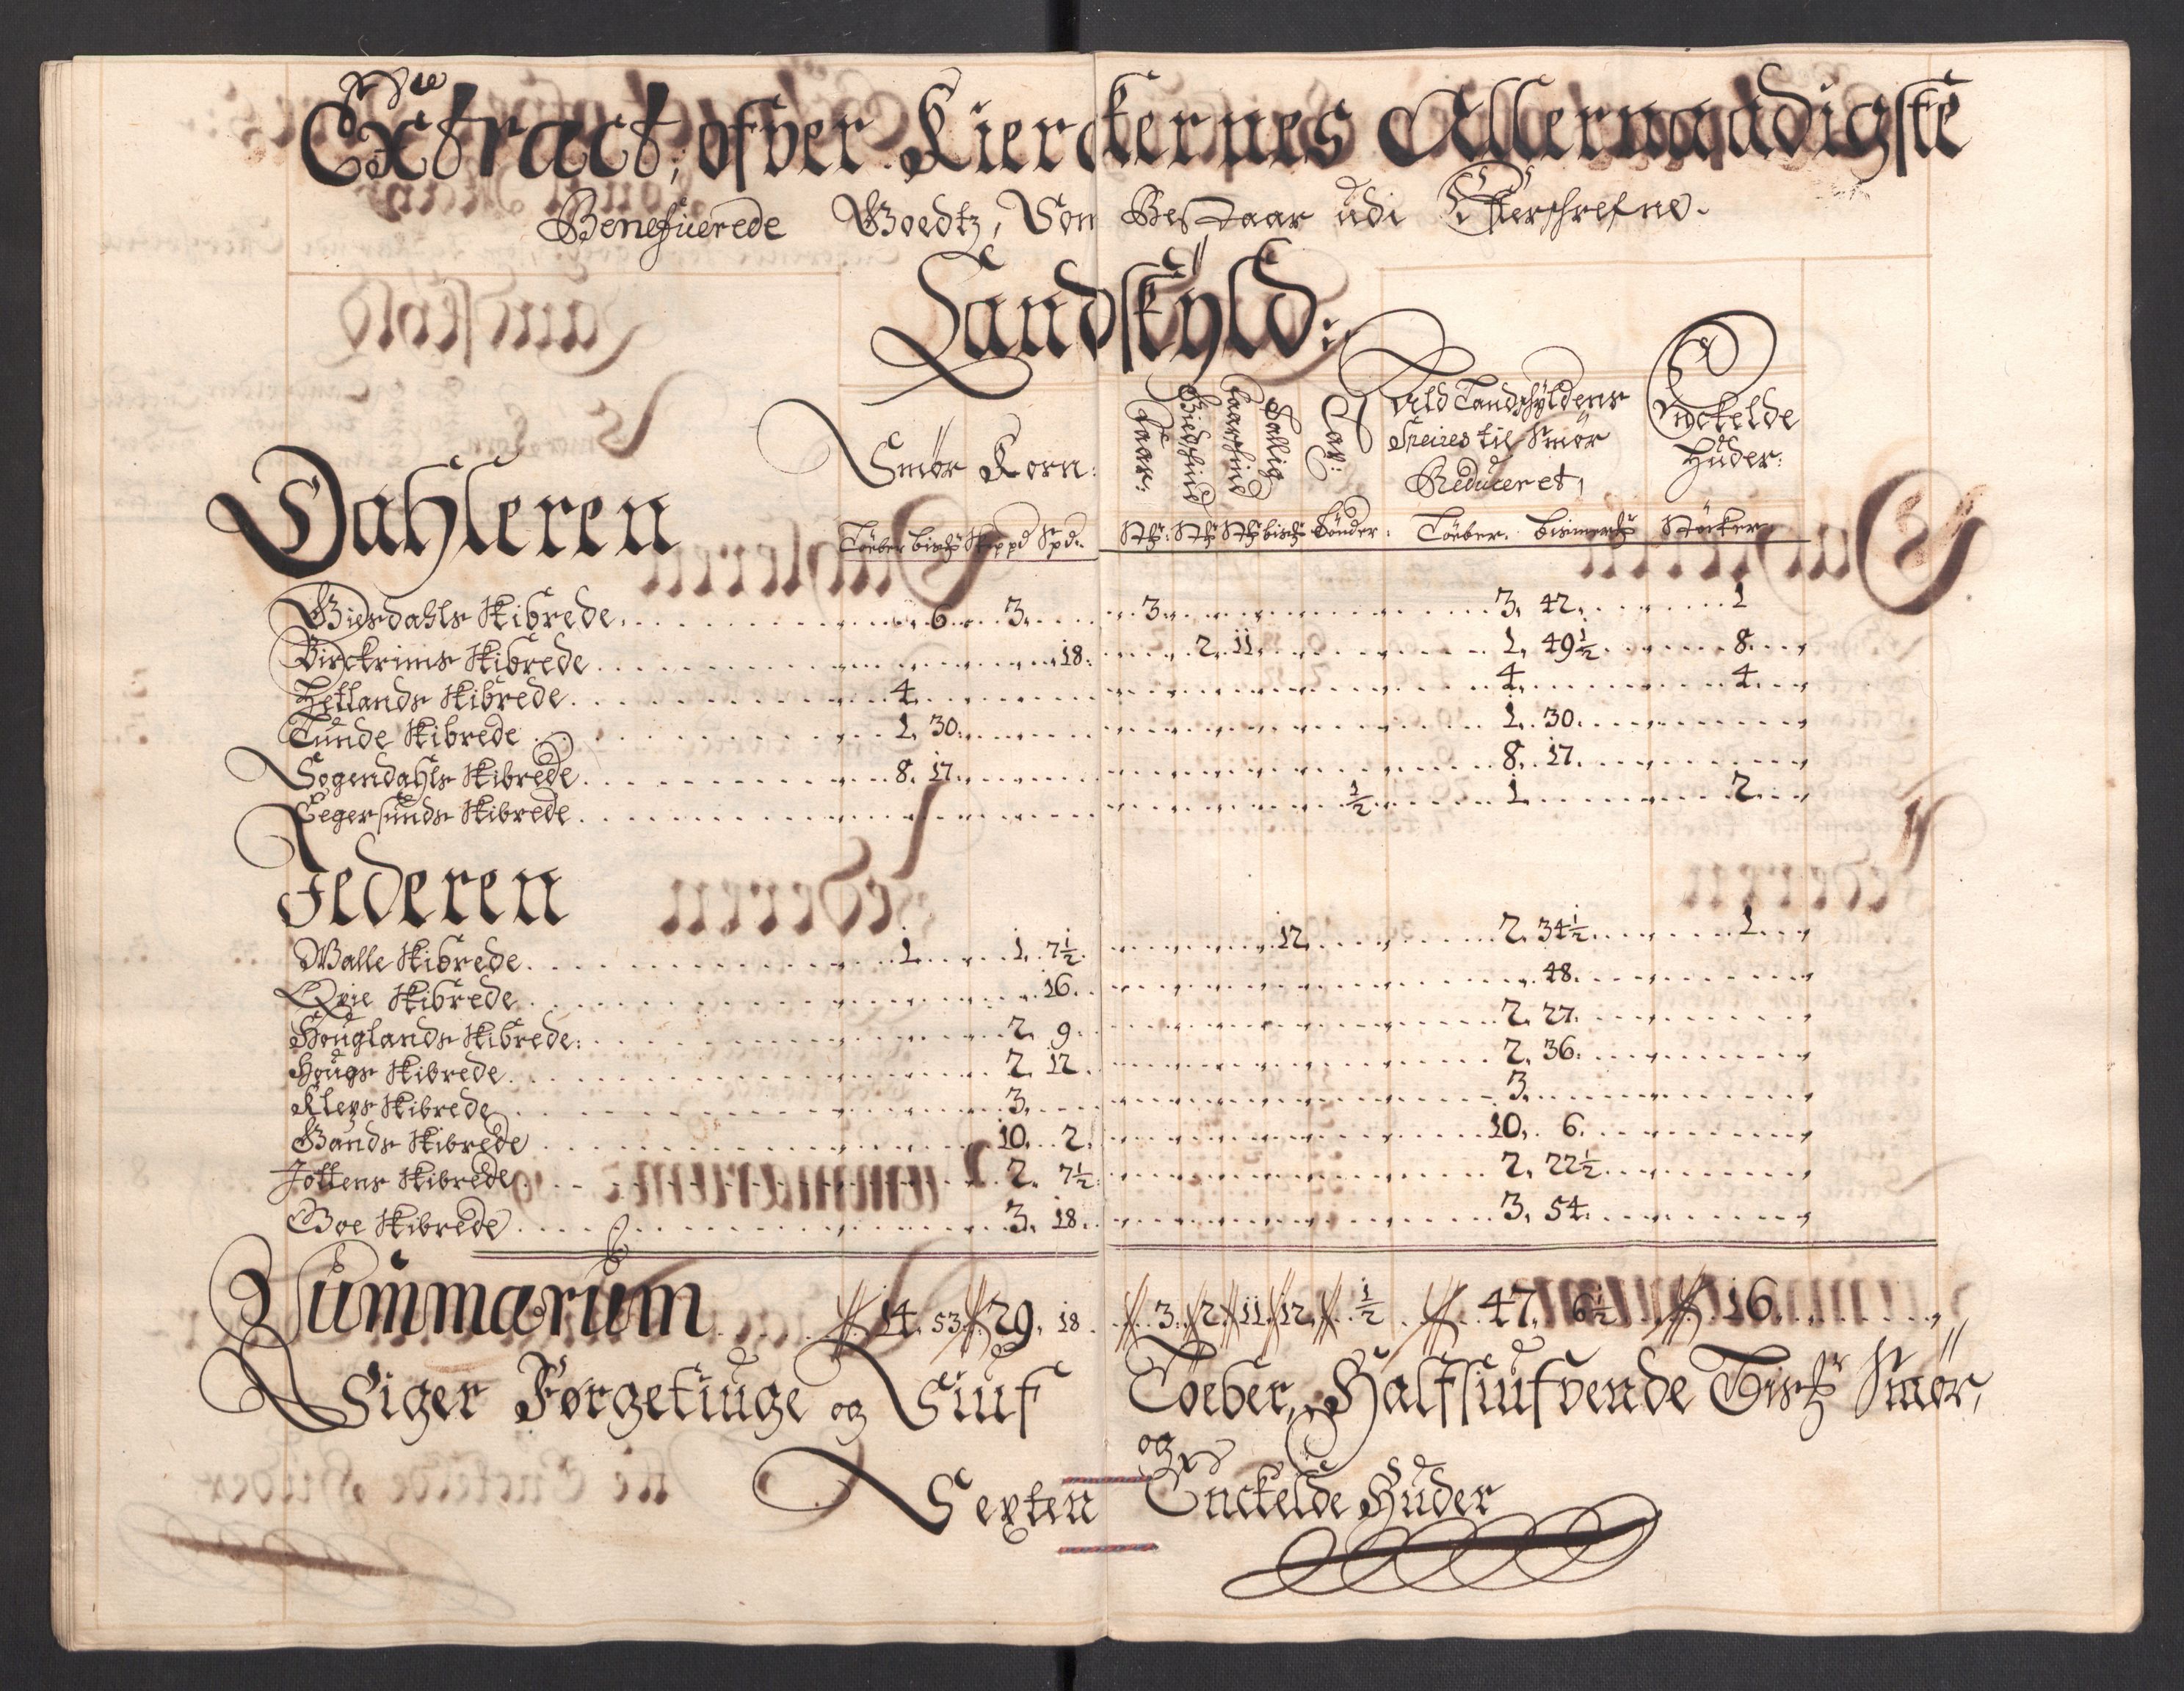 Extract; ofver Kierckernes Allernaadigste
Beneficerede Goedtz, Som Bestaar udi Efterschrefne.
Landskÿld:
Smør Korn: Faar: Giedskind Faarskind Tallig Lax: Ald Landschÿldens Enckelde
Speties til Smør Huder:
Reduceret,
Dahleren
Løeber bisp Skippd Spd: Støcker
Giesdahls Skibrede. 6. 3. 3. 3. 42. 1
Birckrims Skibrede 18. 2. 11. 1. 49½ 8.
Hetlands Skibrede. 4. 4. 4.
Lunde Skibrede 1. 30. 1. 30.
Sogendahls Skibrede 8. 17. 8. 17.
Eegersunds Skibrede ½ 1. 2.
Jederen
Walle Skibrede. 1. 1. 7½ 12. 2. 34½ 1.
Qvie Skibrede. 16. 48.
Houglands Skibrede: 2. 9. 2. 27.
Hougs Skibrede. 2. 12. 2. 36.
Kleps Skibrede 3. 3.
Gands Skibrede 10. 2. 10. 6.
Jottens Skibrede. 2. 7½ 2. 22½
Goe Skibrede 3. 18. 3. 54.
Summarum 14. 53. 29. 18. 3. 2. 11. 12. ½ 47. 6½ 16.
Siger Førgetiuge og Siuf Løeber, Halfsiufvende Smør,
og
Sexten Enckelde Huder